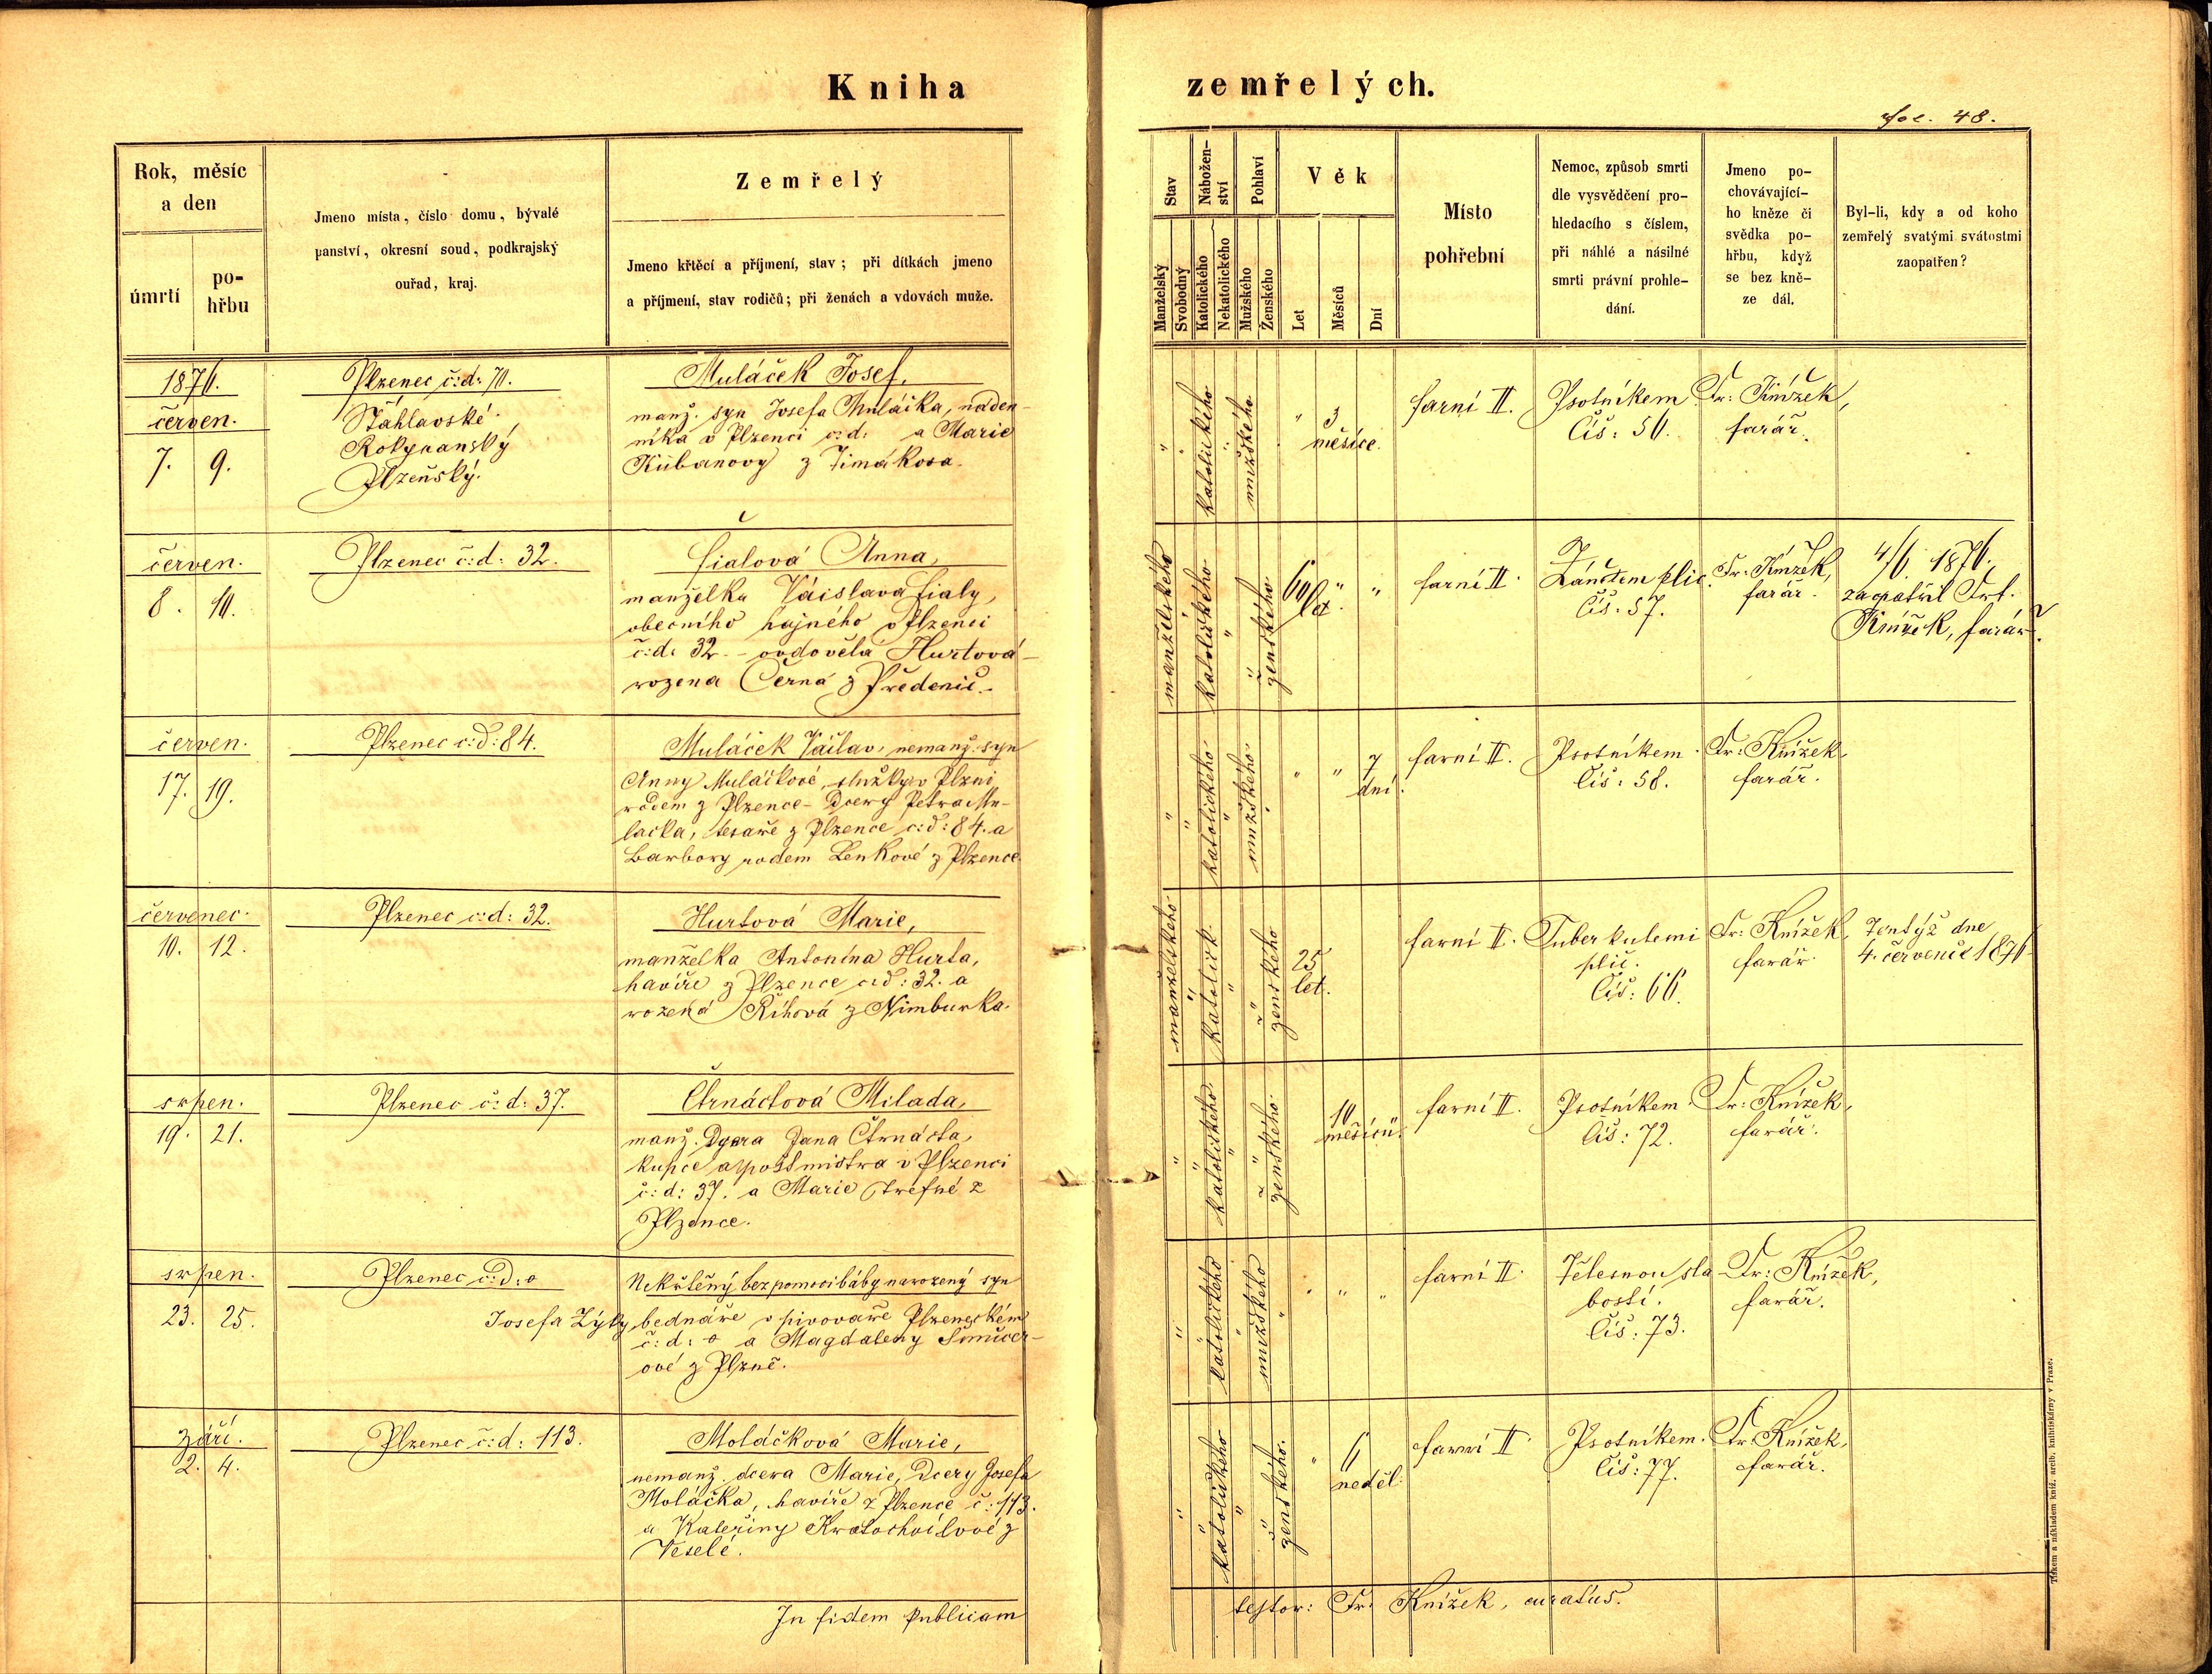 Kniha zemřelých.
Fol. 48.
Rok, měsíc
a den
úmrtí
po-
hřbu
Jmeno místa, číslo domu, bývalé
panství, okresní soud, podkrajský
ouřad, kraj.
Zemřelý
Jmeno křtěcí a příjmení, stav; při dítkách jmeno
a příjmení, stav rodičů; při ženách a vdovách muže.
Stav
Manželský
Svobodný
Nábožen-
ství
Katolického
Nekatolického
Pohlaví
Mužského
Ženského
Věk
Let
Měsíců
Dní
Místo
pohřební
Nemoc, způsob smrti
dle vysvědčení pro-
hledacího s číslem,
při náhlé a násilné
smrti právní prohle-
dání.
Jmeno po-
chovávající-
ho kněze či
svědka po-
hřbu, když
se bez kně-
ze dál.
Byl-li, kdy a od koho
zemřelý svatými svátostmi
zaopatřen?
1876.
červen.
7. 9.
Plzenec č:d: 70.
Šťáhlavské
Rokycanský
Plzeňský.
Muláček Josef,
manž. syn Josefa Muláčka, náden-
níka v Plzenci č:d: a Marie
z Timákova.
" katolického mužského
" 3
měsíce.
farní II.
Psotníkem
Čís: 56.
Fr: Knížek,
farář.
červen.
8. 10.
Plzenec č:d: 32.
Fialová Anna,
manželka Václava Fialy,
obecního hajného v Plzenci
č:d: 32. - ovdovělá Hurtová -
rozená Černá z Předenic.
manželského katolického ženského
60 let " "
farní II.
Zánětem plic.
Čís: 57.
Fr: Knížek,
farář.
4/6 1876.
zaopatřil Frt.
Knížek, farář.
červen.
17. 19.
Plzenec č:d: 84.
Muláček Václav, nemanž. syn
Anny Muláčkové, služky v Plzni
rodem z Plzence - Dcery Petra Mu-
láčka, tesaře z Plzence č:d: 84. a
Barbory rodem Lenkové z Plzence.
" " katolického mužského
" " 7
dní.
farní II.
Psotníkem.
Čís: 58.
Fr: Knížek
farář.
červenec.
10. 12.
Plzenec č:d: 32.
Hurtová Marie,
manželka Antonína Hurta,
havíře z Plzence č:d: 32. a
rozená Říhová z Nimburka.
manželského katolick. ženského
25
let.
farní II.
Tuberkulemi
plic.
Čís: 66.
Fr: Knížek,
farář
Tentýž dne
4. července 1876
srpen.
19. 21.
Plzenec č:d: 37.
Čtrnáctová Milada,
manž. Dcera Jana Čtrnácta,
kupce a postmistra v Plzenci
č:d: 37. a Marie Trefné z
Plzence.
" " katolického ženského
10
měsíců.
farní II.
Psotníkem
Čís: 72.
Fr: Knížek,
farář.
srpen.
23. 25.
Plzenec č:D: o
Nekřtěný, bez pomoci báby narozený syn
Josefa Zýly bednáře v pivovaře Plzeneckém
č:d: o a Magdaleny
ové z Plzně.
" katolického mužského
" " "
farní II.
Tělesnou sla
bostí.
Čís: 73.
Fr: Knížek,
farář.
září.
2. 4.
Plzenec č:d: 113.
Moláčková Marie,
nemanž. dcera Marie, Dcery Josefa
Moláčka, havíře z Plzence č: 113.
a Kateřiny Kratochvílové z
Veselé.
" " katolického ženského.
" 6
neděl.
farní II.
Psotníkem.
Čís: 77.
Fr. Knížek,
farář.
In fidem publicam
testor: Fr: Knížek, curatus.
Tiskem a nákladem kníž. arcib. knihtiskárny v Praze.